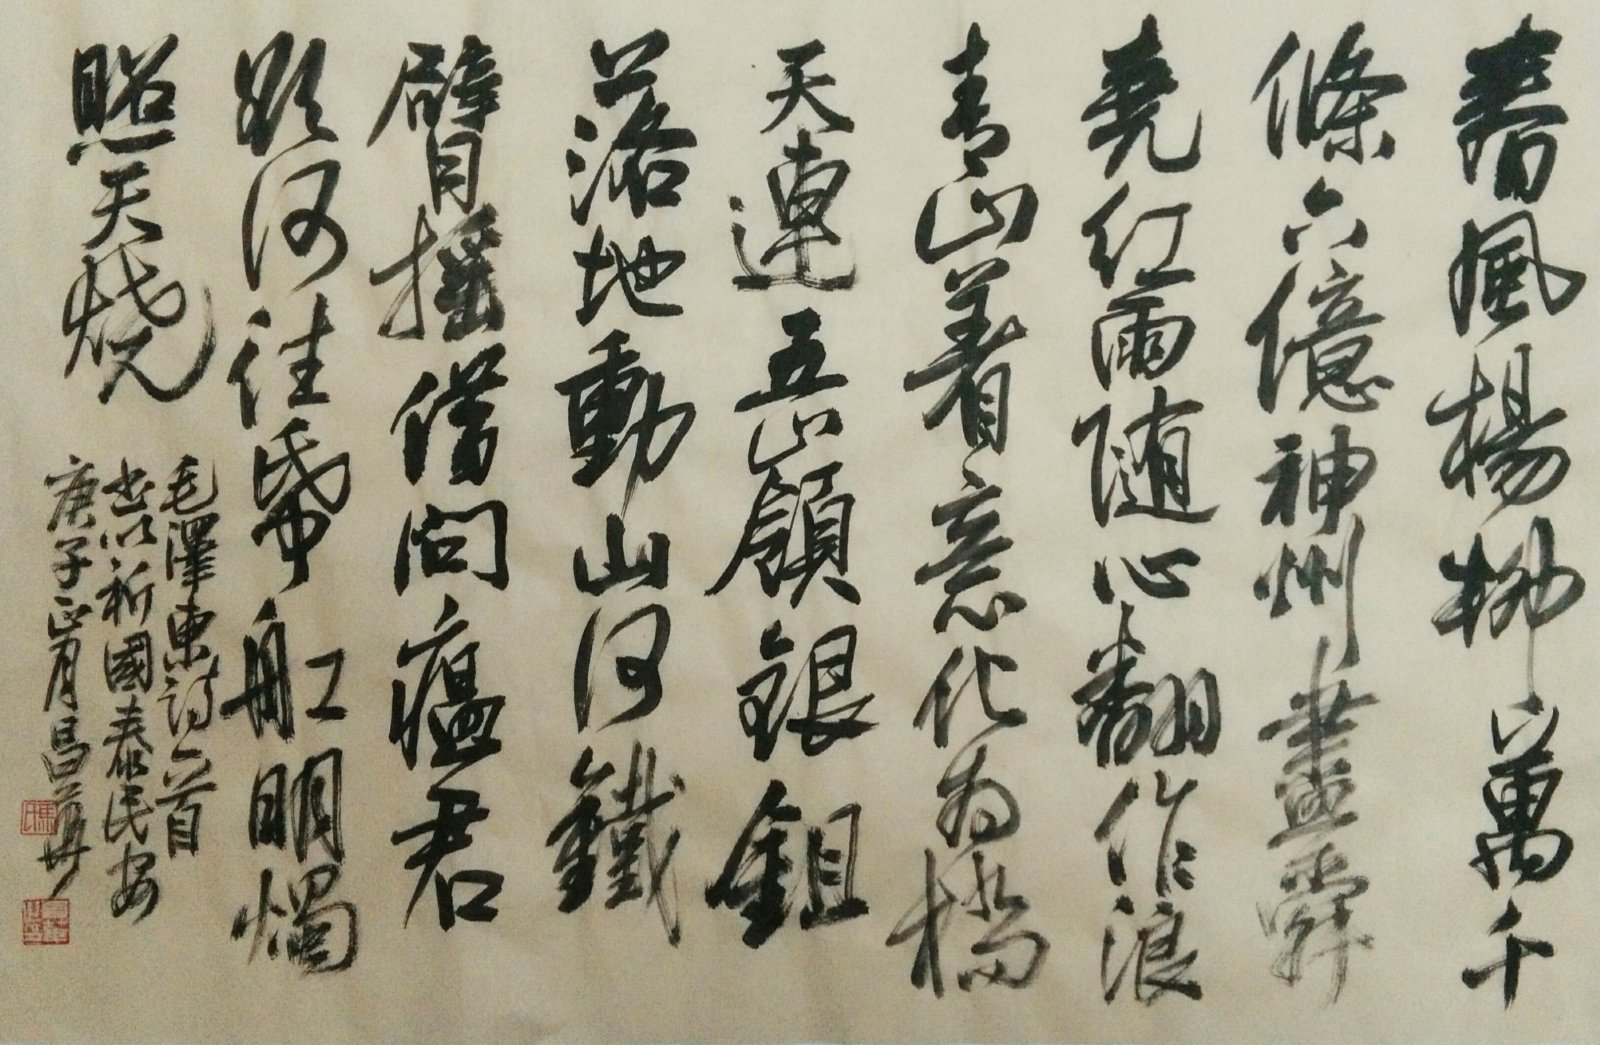 春風楊柳萬千
條六億神州盡舜
堯紅雨随心翻作浪
青山着意化为橋
天連五嶺銀鉏
落地動山河鐵
臂摇借問瘟君
欲何往帋舡明燭
照天烧
毛澤東詩一首
書以祈國泰民安
庚子正月昌